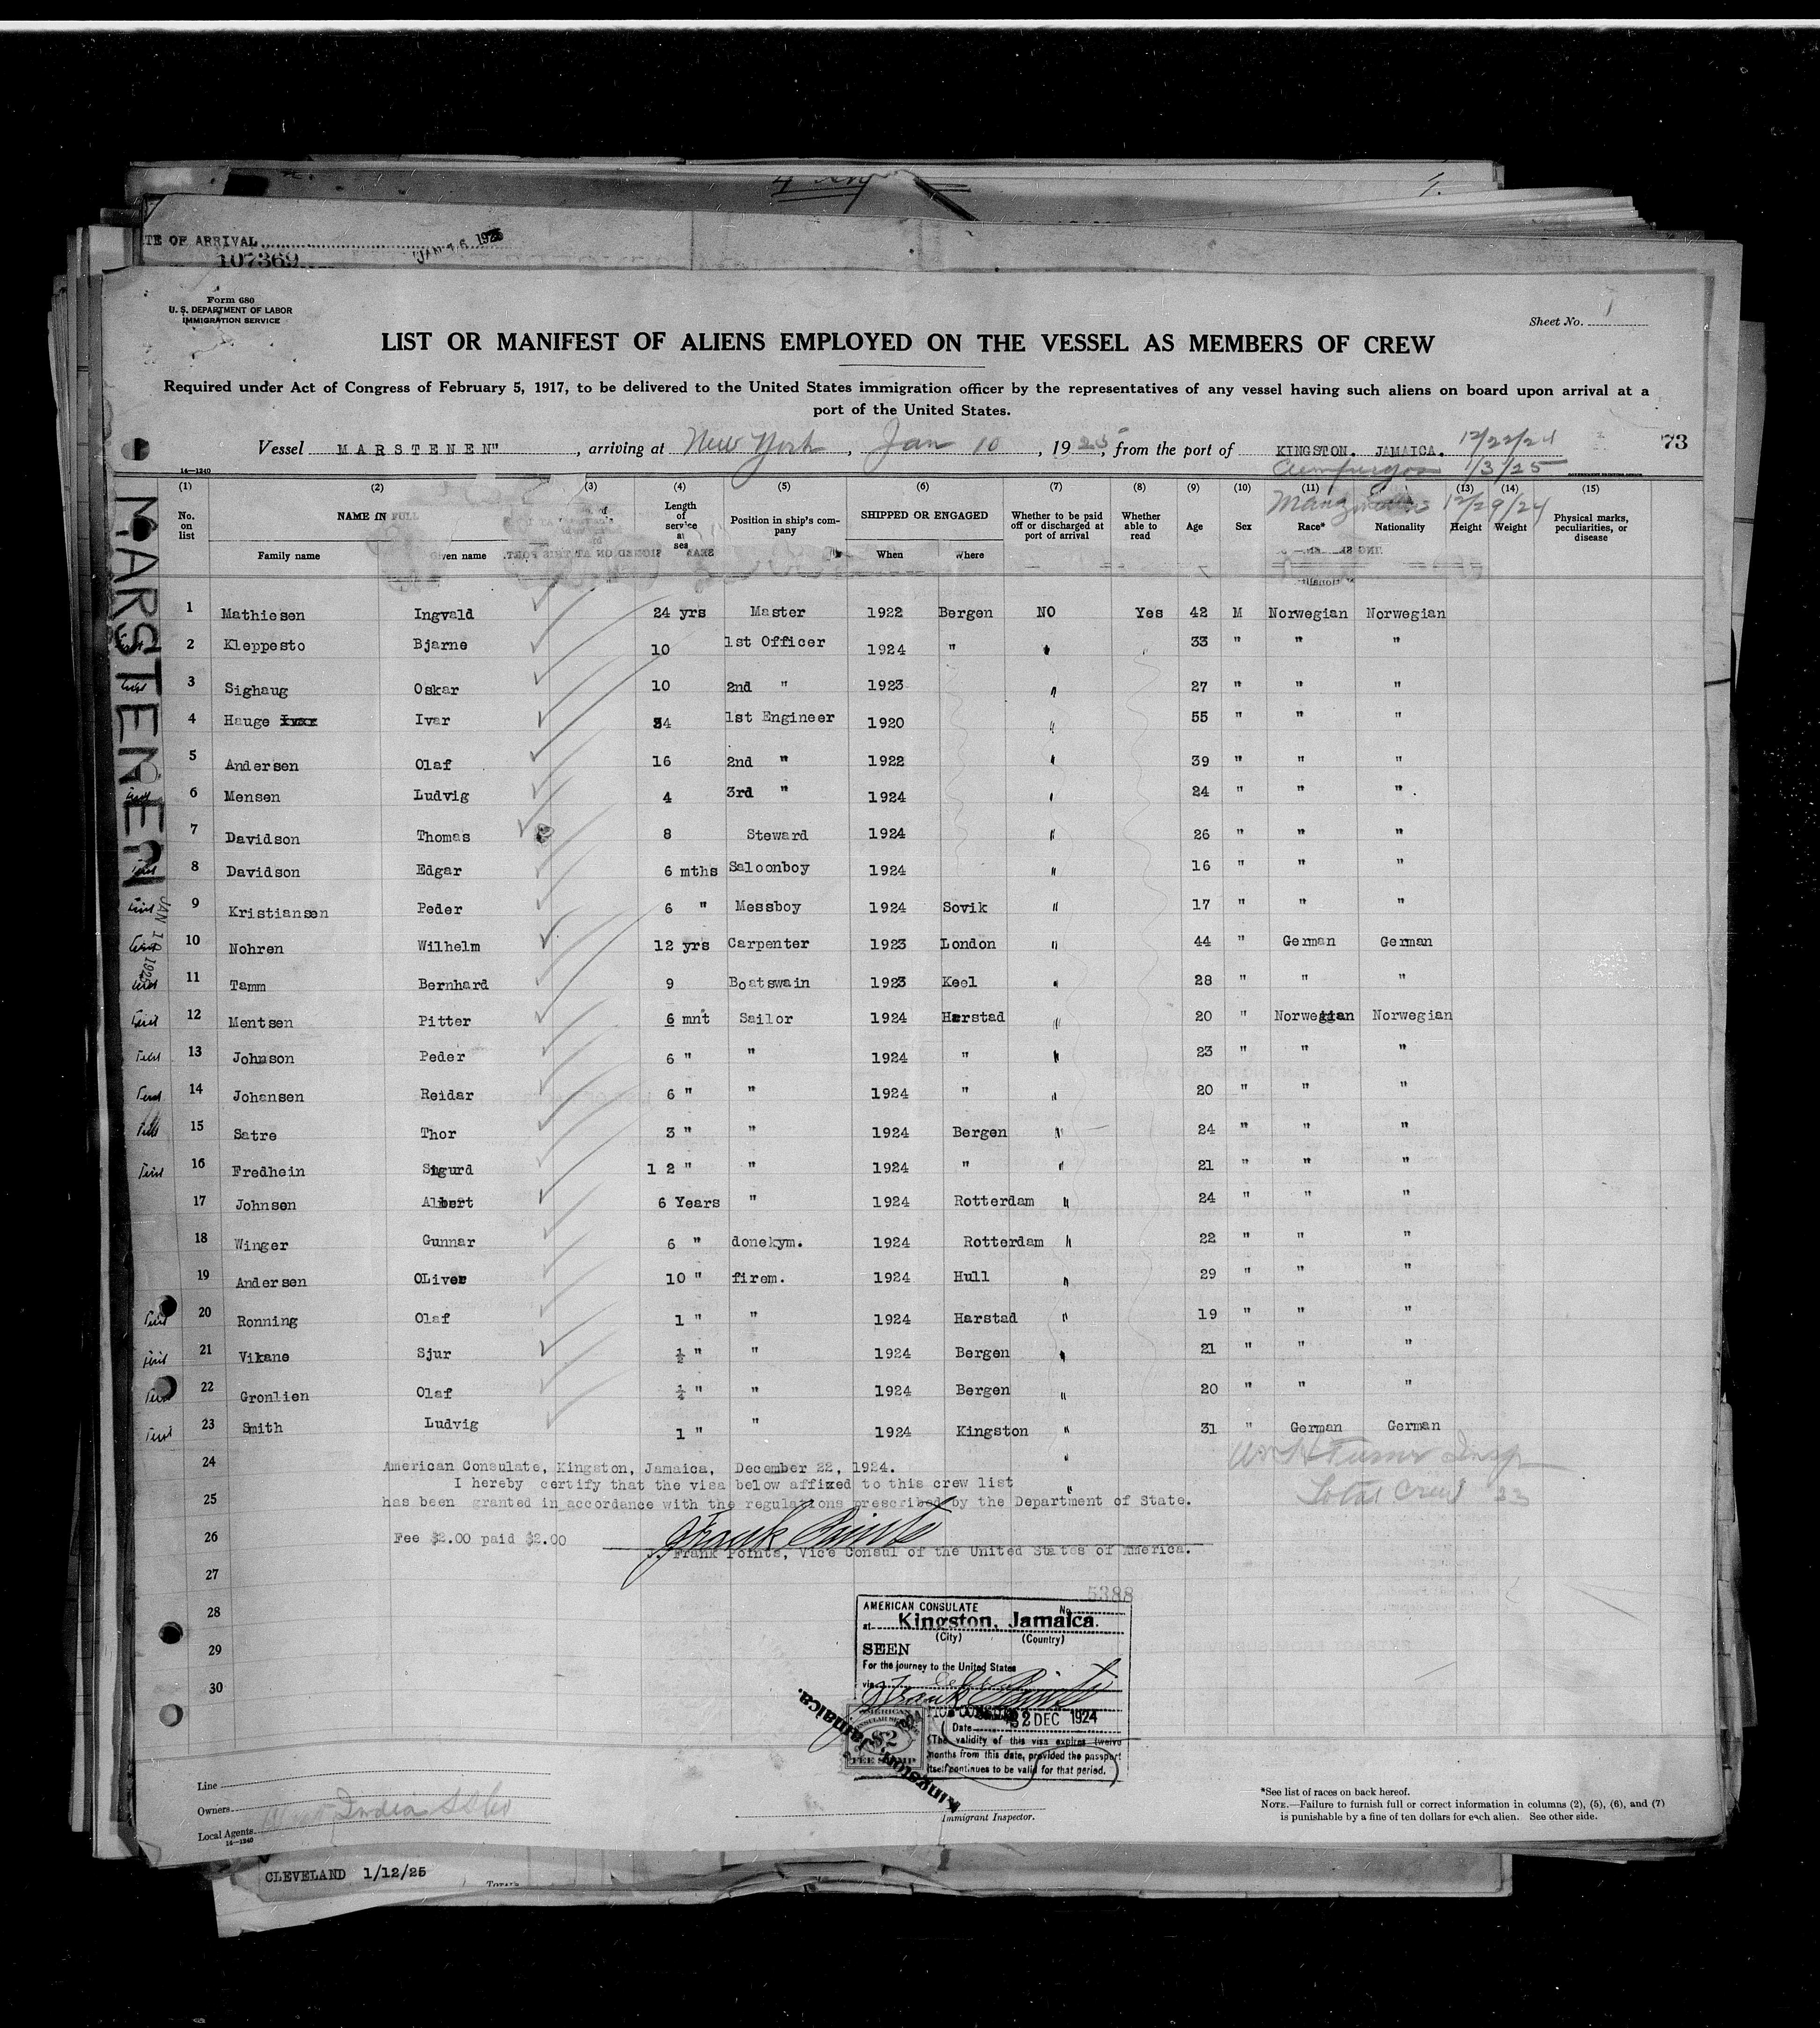 TE OF ARRIVAL
JAN 16 1925
107369
Form 680
U. S. DEPARTMENT OF LABOR
IMMIGRATION SERVICE
Sheet No. 1
LIST OR MANIFEST OF ALIENS EMPLOYED ON THE VESSEL AS MEMBERS OF CREW
Required under Act of Congress of February 5, 1917, to be delivered to the United States immigration officer by the representatives of any vessel having such aliens on board upon arrival at a
port of the United States.
Vessel MARSTENEN", arriving at New York, Jan 10, 1925, from the port of KINGSTON. JAMAICA. 12/22/24
73
1/3/25
14—1240
12/29/24
(1) (2) (3) (4) (5) (6) (7) (8) (9) (10) (11) (13) (14) (15)
No. on list NAME IN FULL Length of service at sea Position in ship's company SHIPPED OR ENGAGED Whether to be paid off or discharged at port of arrival Whether able to read Age Sex Race* Nationality Height Weight Physical marks, peculiarities, or disease
Family name Given name When Where
MARSTENEN
JAN 10 1925
1 Mathiesen Ingvald 24 yrs Master 1922 Bergen NO Yes 42 M Norwegian Norwegian
2 Kleppesto Bjarne 10 1st Officer 1924 " " 33 " " "
3 Sighaug Oskar 10 2nd " 1923 " 27 " " "
4 Hauge Ivar 34 1st Engineer 1920 " 55 " " "
5 Andersen Olaf 16 2nd " 1922 " 39 " " "
6 Mensen Ludvig 4 3rd " 1924 " 24 " " "
7 Davidson Thomas 8 Steward 1924 " 26 " " "
8 Davidson Edgar 6 mths Saloonboy 1924 " 16 " " "
9 Kristiansen Peder 6 " Messboy 1924 Sovik " 17 " " "
10 Nohren Wilhelm 12 yrs Carpenter 1923 London " 44 " German German
11 Tamm Bernhard 9 Boatswain 1923 Keel " 28 " " "
12 Mentsen Pitter 6 mnt Sailor 1924 Harstad " 20 " Norwegian Norwegian
13 Johnson Peder 6 " " 1924 " " 23 " " "
14 Johansen Reidar 6 " " 1924 " " 20 " " "
15 Satre Thor 3 " " 1924 Bergen " 24 " " "
16 Fredhein Sigurd 1 2 " " 1924 " " 21 " " "
17 Johnsen Albert 6 Years " 1924 Rotterdam " 24 " " "
18 Winger Gunnar 6 " donekym. 1924 Rotterdam " 22 " " "
19 Andersen OLiver 10 " firem. 1924 Hull " 29 " " "
20 Ronning Olaf 1 " " 1924 Harstad " 19 " " "
21 Vikane Sjur ½ " " 1924 Bergen " 21 " " "
22 Gronlien Olaf ¼ " " 1924 Bergen " 20 " " "
23 Smith Ludvig 1 " " 1924 Kingston " 31 " German German
24 American Consulate, Kingston, Jamaica, December 22, 1924.
I hereby certify that the visa below affixed to this crew list
25 has been granted in accordance with the regulations prescribed by the Department of State.
Total Crew 23
26 Fee $2.00 paid $2.00
J. Frank Points, Vice Consul of the United States of America.
27
5388
28 AMERICAN CONSULATE No.
at Kingston, Jamaica.
(City) (Country)
29 SEEN
For the journey to the United States
via
30
Date 22 DEC 1924
The validity of this visa expires twelve
months from this date, provided the passport
itself continues to be valid for that period.
AMERICAN
CONSULAR SERVICE
$2
FEE STAMP
Kingston, Jamaica.
Line
Owners
Local Agents
14—1240
Immigrant Inspector.
*See list of races on back hereof.
NOTE.—Failure to furnish full or correct information in columns (2), (5), (6), and (7)
is punishable by a fine of ten dollars for each alien. See other side.
CLEVELAND 1/12/25
TOTAL